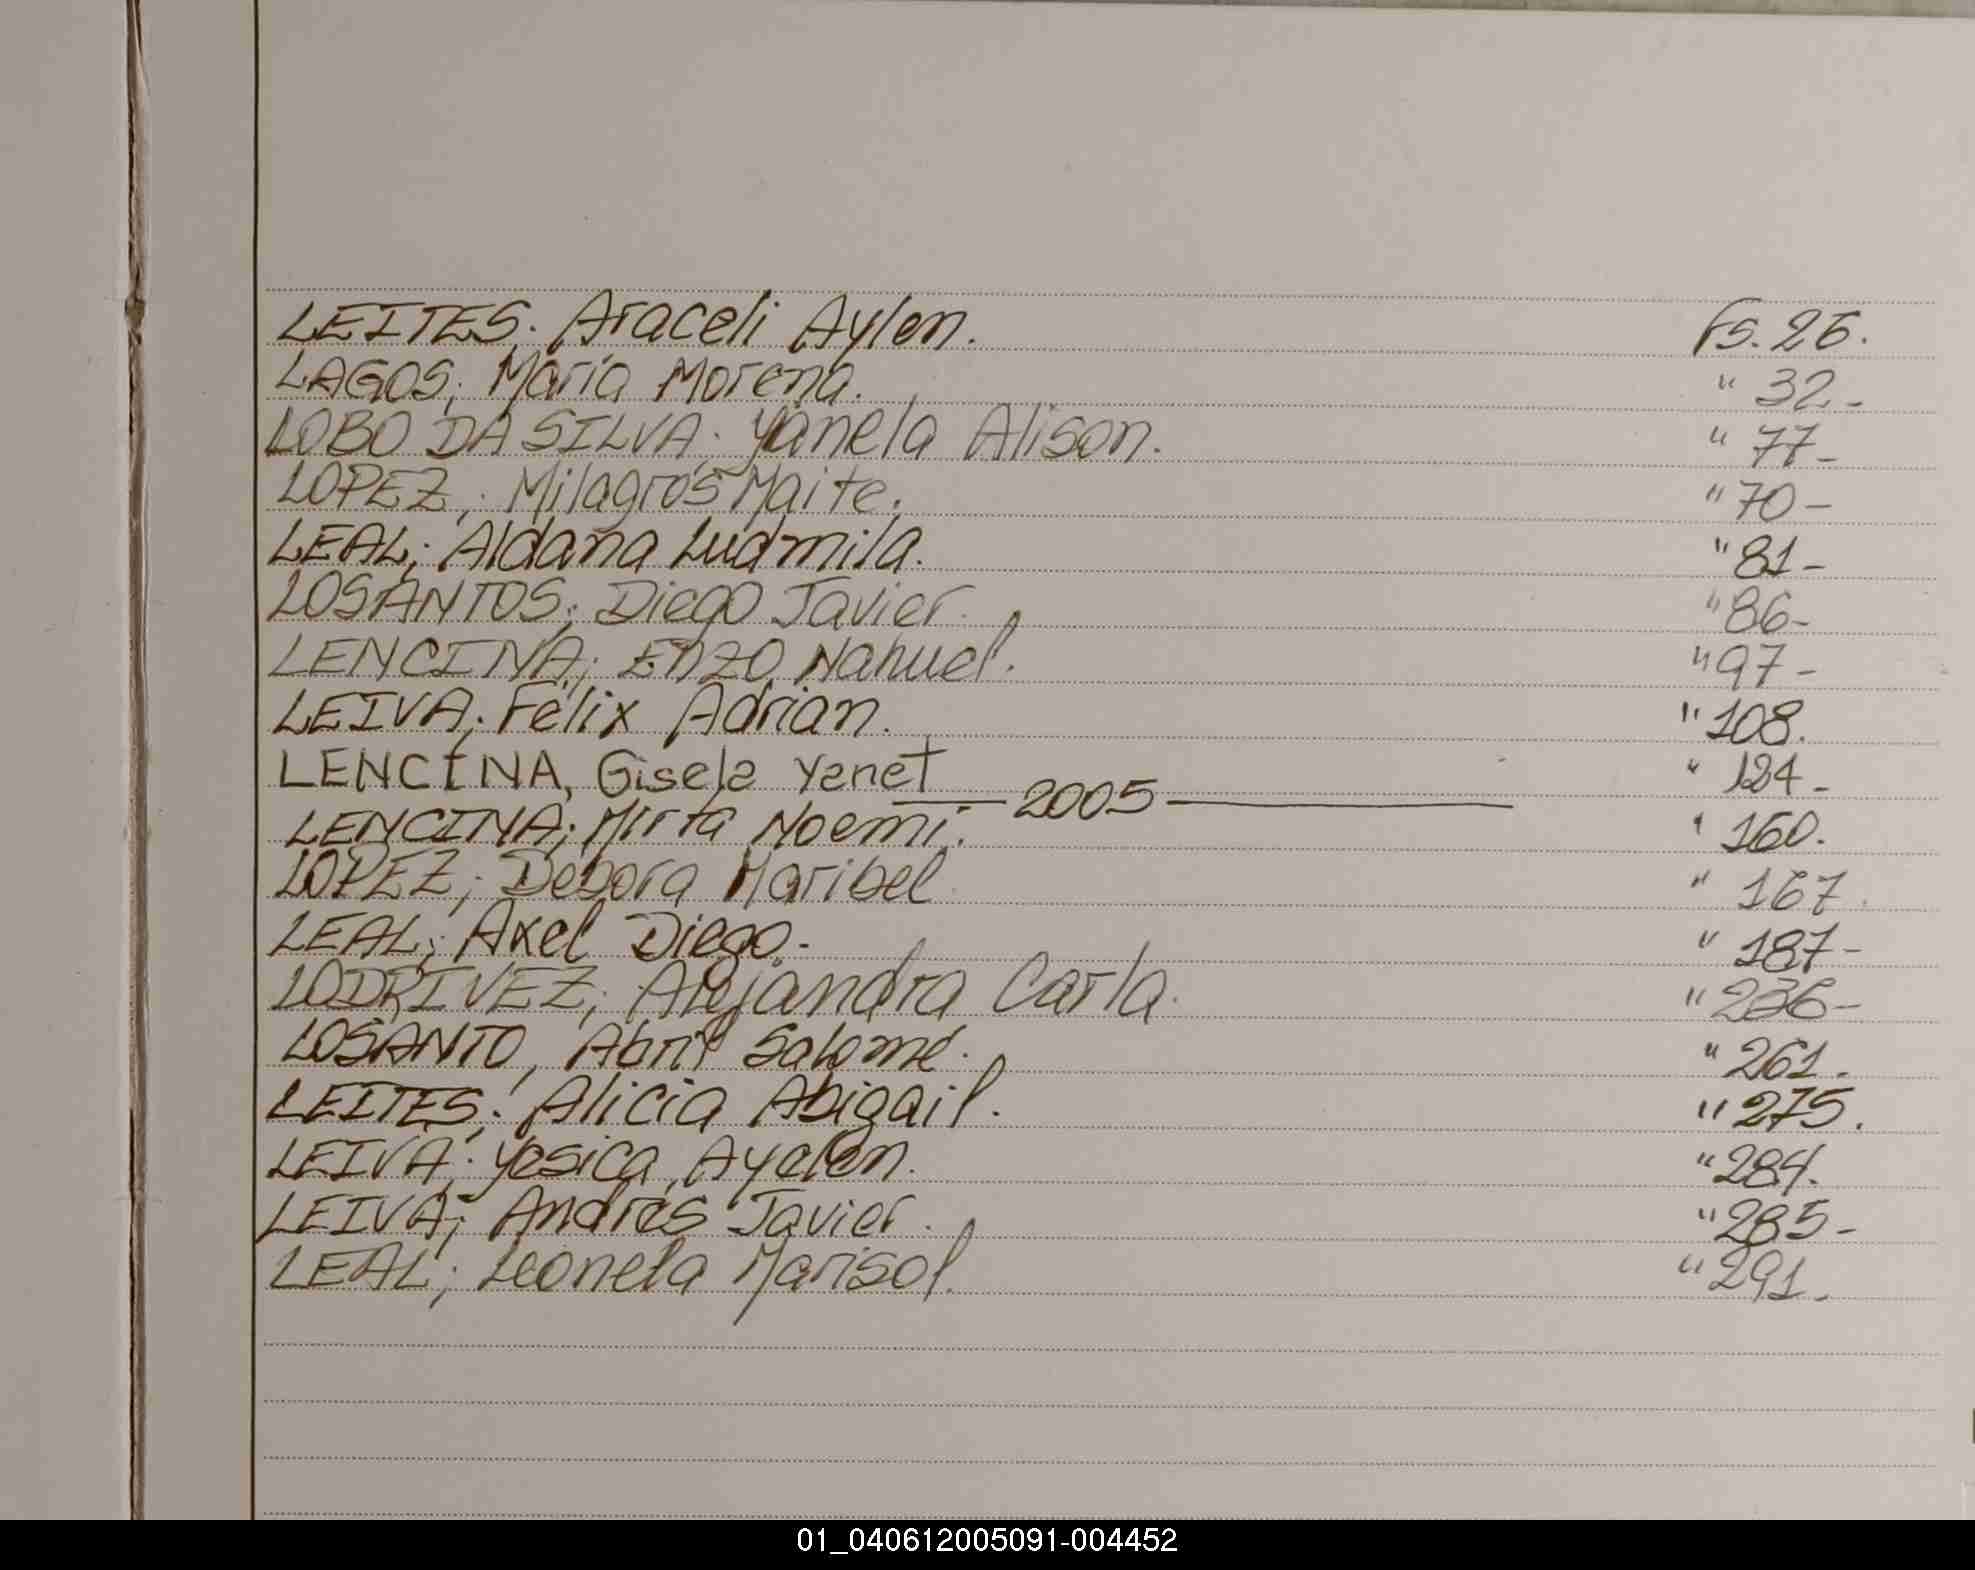 LEITES; Araceli Aylen. Fs. 26.
LAGOS; María Morena. " 32-
LOBO DA SILVA; Yanela Alison. " 77-
LOPEZ; Milagros Maite. " 70-
LEAL; Aldana Ludmila. " 81-
LOSANTOS; Diego Javier. " 86-
LENCINA; Enzo Nahuel. " 97-
LEIVA; Félix Adrian. " 108.
LENCINA, Gisela Yanet " 124-
— 2005 —
LENCINA; Mirta Noemi. " 160.
LOPEZ; Debora Maribel. " 167.
LEAL; Axel Diego. " 187-
LODRIVEZ; Alejandra Carla. " 236-
LOSANTO, Abril Salomé. " 261.
LEITES; Alicia Abigail. " 275.
LEIVA; Yesica Ayelen. " 284.
LEIVA; Andres Javier. " 285-
LEAL; Leonela Marisol. " 291.
01_040612005091-004452